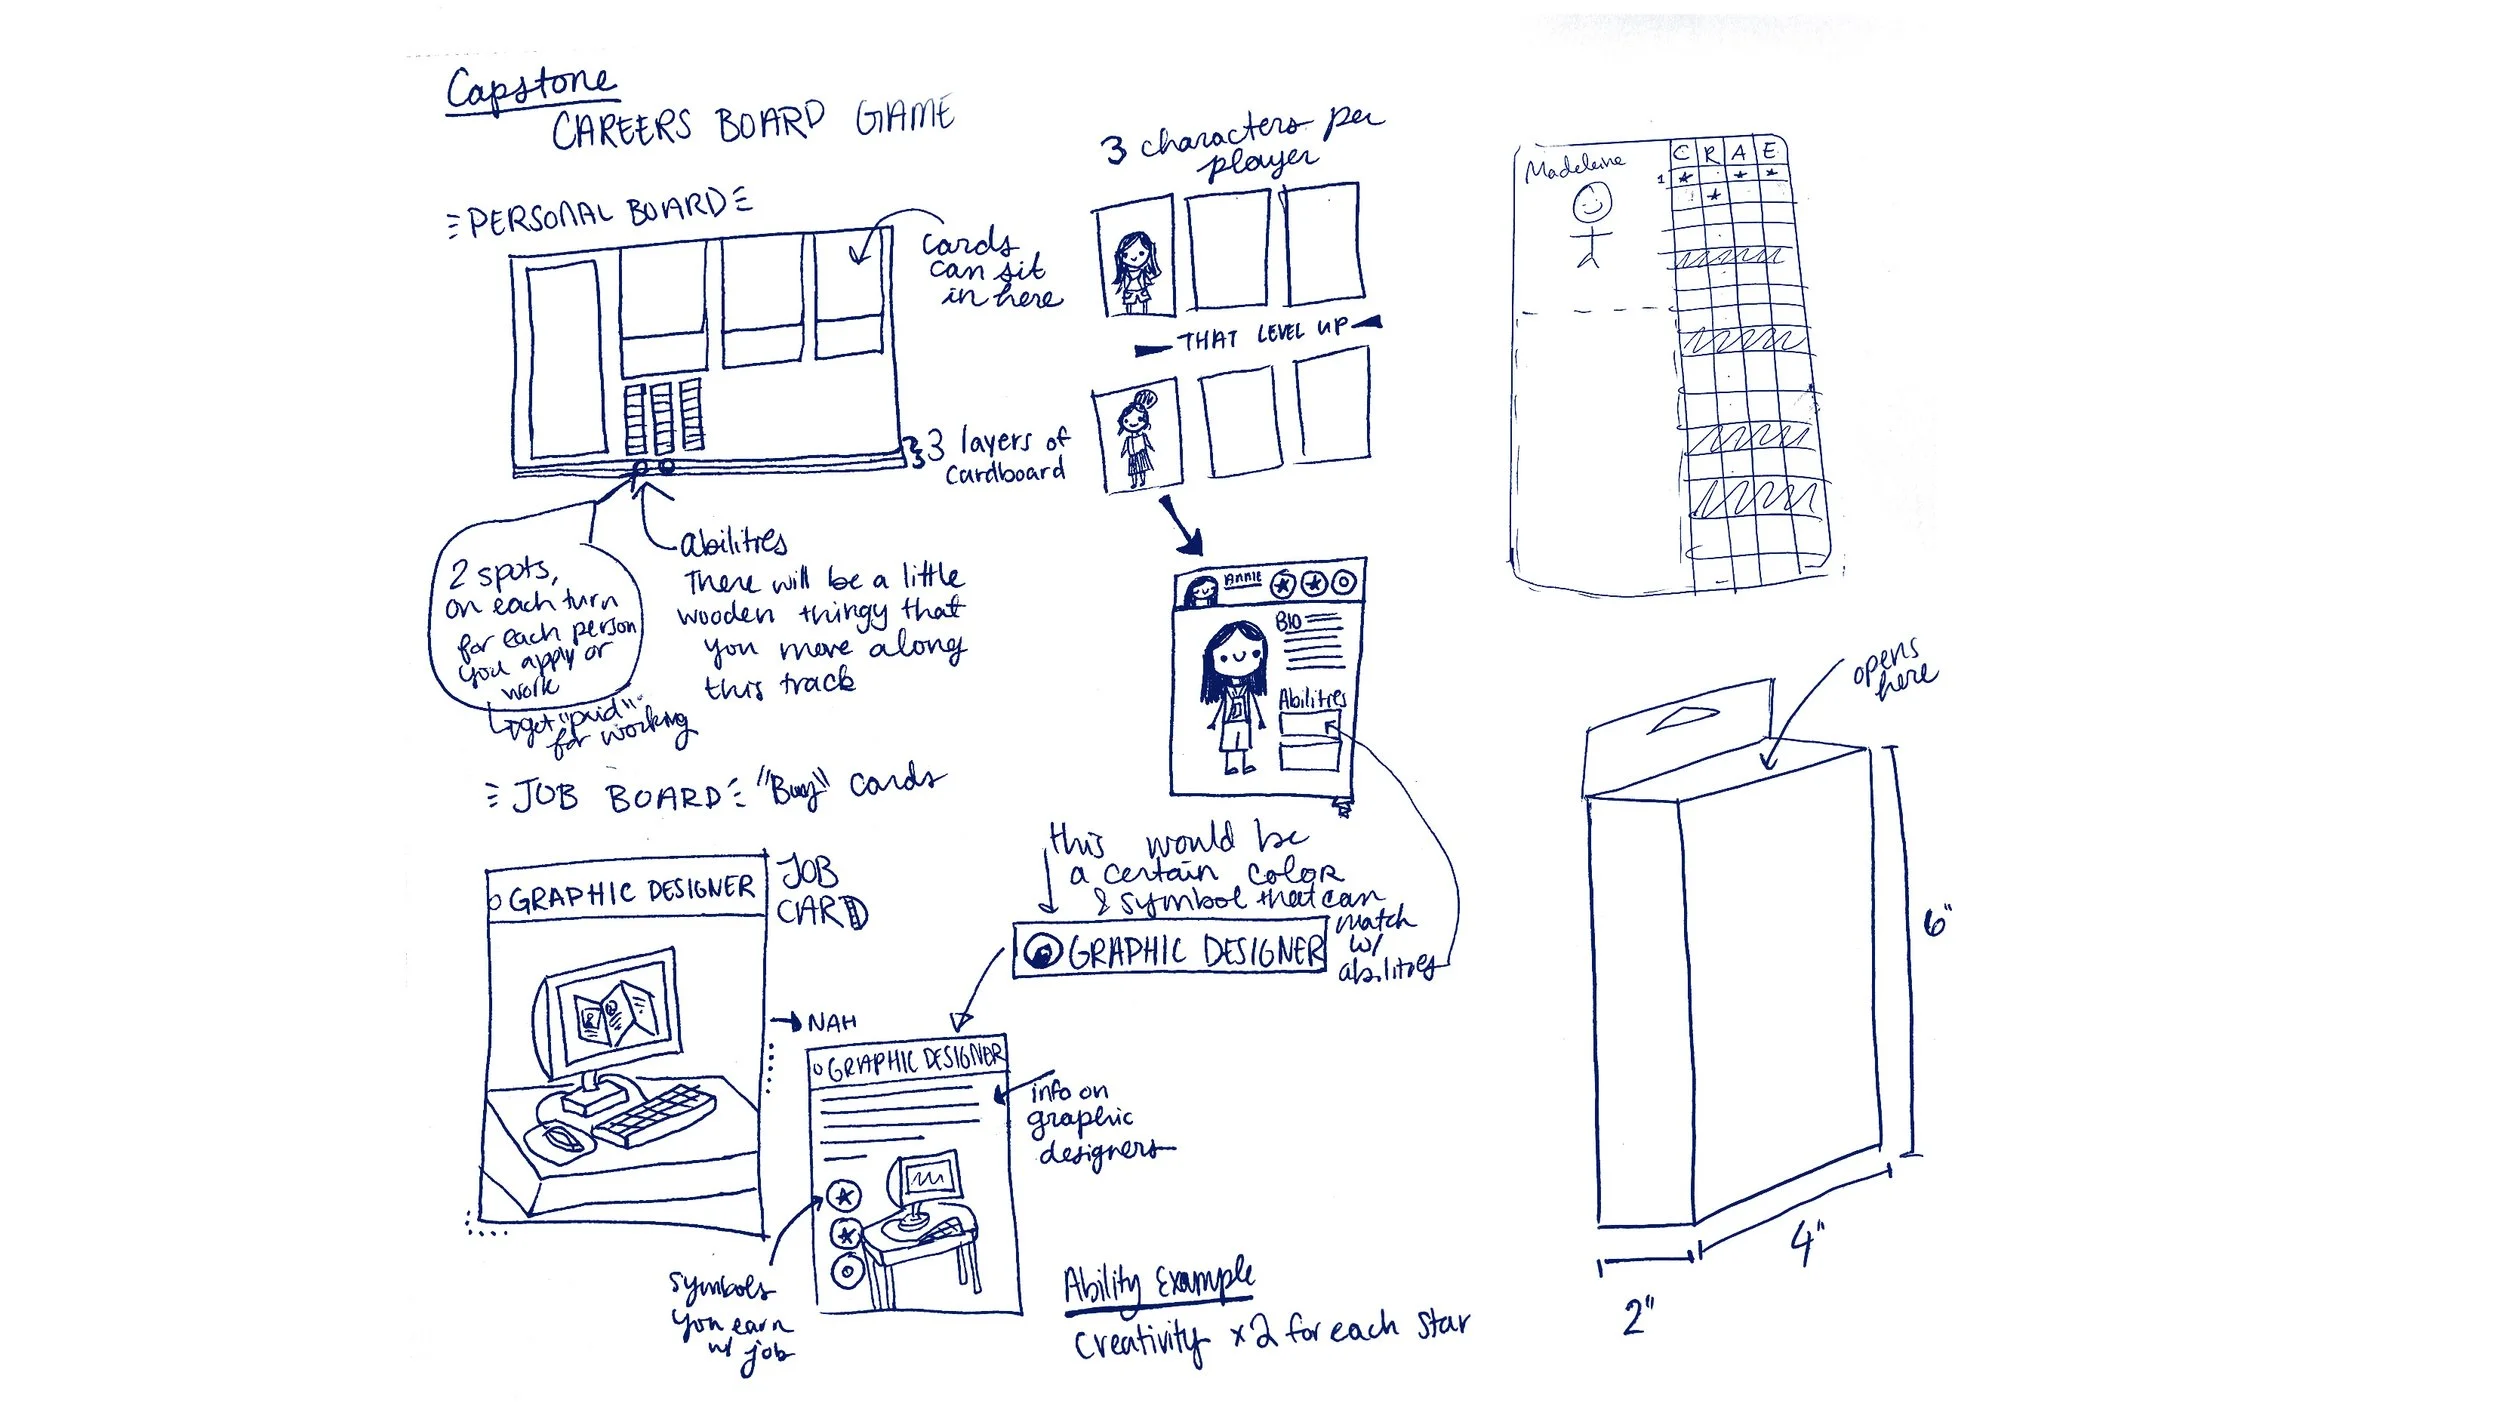 Capstone
CAREERS BOARD GAME
PERSONAL BOARD
cards
can sit
in here
3 layers of
cardboard
2 spots,
on each turn
for each person
you apply or
work
get "paid"
for working
abilities
There will be a little
wooden thingy that
you move along
this track
JOB BOARD "Buy" cards
GRAPHIC DESIGNER
JOB
CARD
NAH
GRAPHIC DESIGNER
info on
graphic
designers
symbols
you earn
w/ job
3 characters per
player
THAT LEVEL UP
ANNIE
BIO
Abilities
this would be
a certain color
& symbol that can
match
w/
abilities
GRAPHIC DESIGNER
Ability Example
Creativity x2 for each star
Madeleine
C R A E
1
opens
here
6"
4"
2"